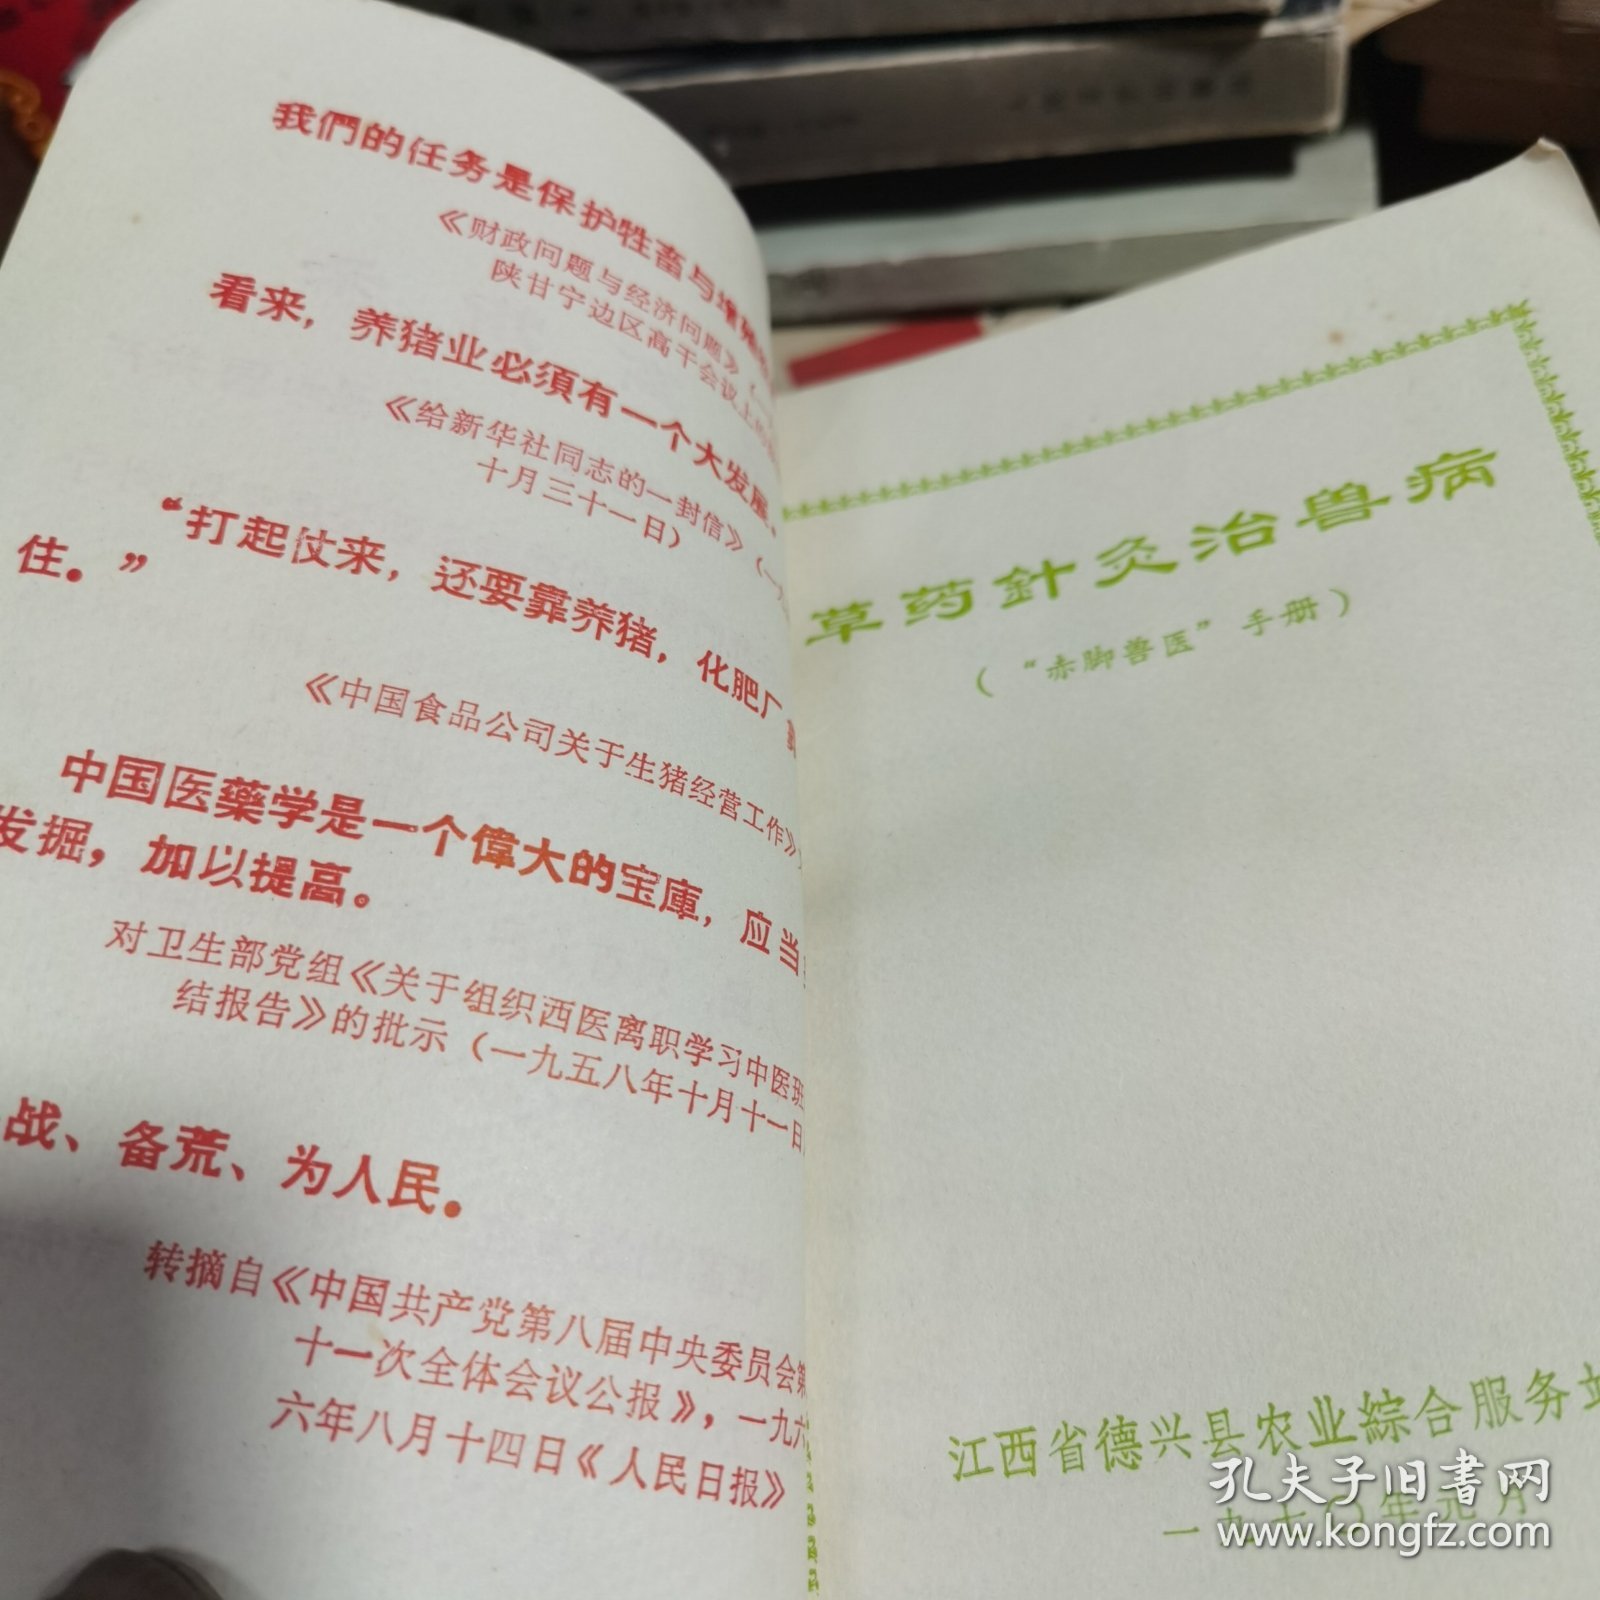 我們的任务是保护牲畜与增
《财政问题与经济问题》(一
陕甘宁边区高干会议上的
看来，养猪业必須有一个大发展，
《给新华社同志的一封信》(一九
十月三十一日)
“打起仗来，还要靠养猪，化肥厂
住。”
《中国食品公司关于生猪经营工作》
中国医藥学是一个偉大的宝庫，应当
发掘，加以提高。
对卫生部党组《关于组织西医离职学习中医班
结报告》的批示(一九五八年十月十一日
战、备荒、为人民。
转摘自《中国共产党第八届中央委员会第
十一次全体会议公报》，一九六
六年八月十四日《人民日报》
草药針灸治兽病
(“赤脚兽医”手册)
江西省德兴县农业綜合服务站
一九七〇年元月
孔夫子旧書网
www.kongfz.com